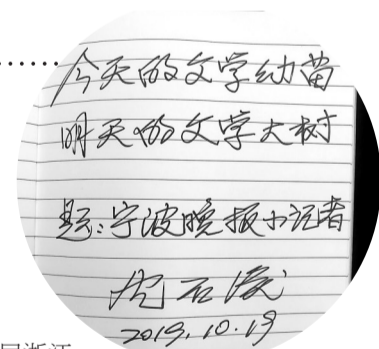 今天的文学幼苗
明天的文学大树
题:宁波晚报小记者
2019.10.19
浙江